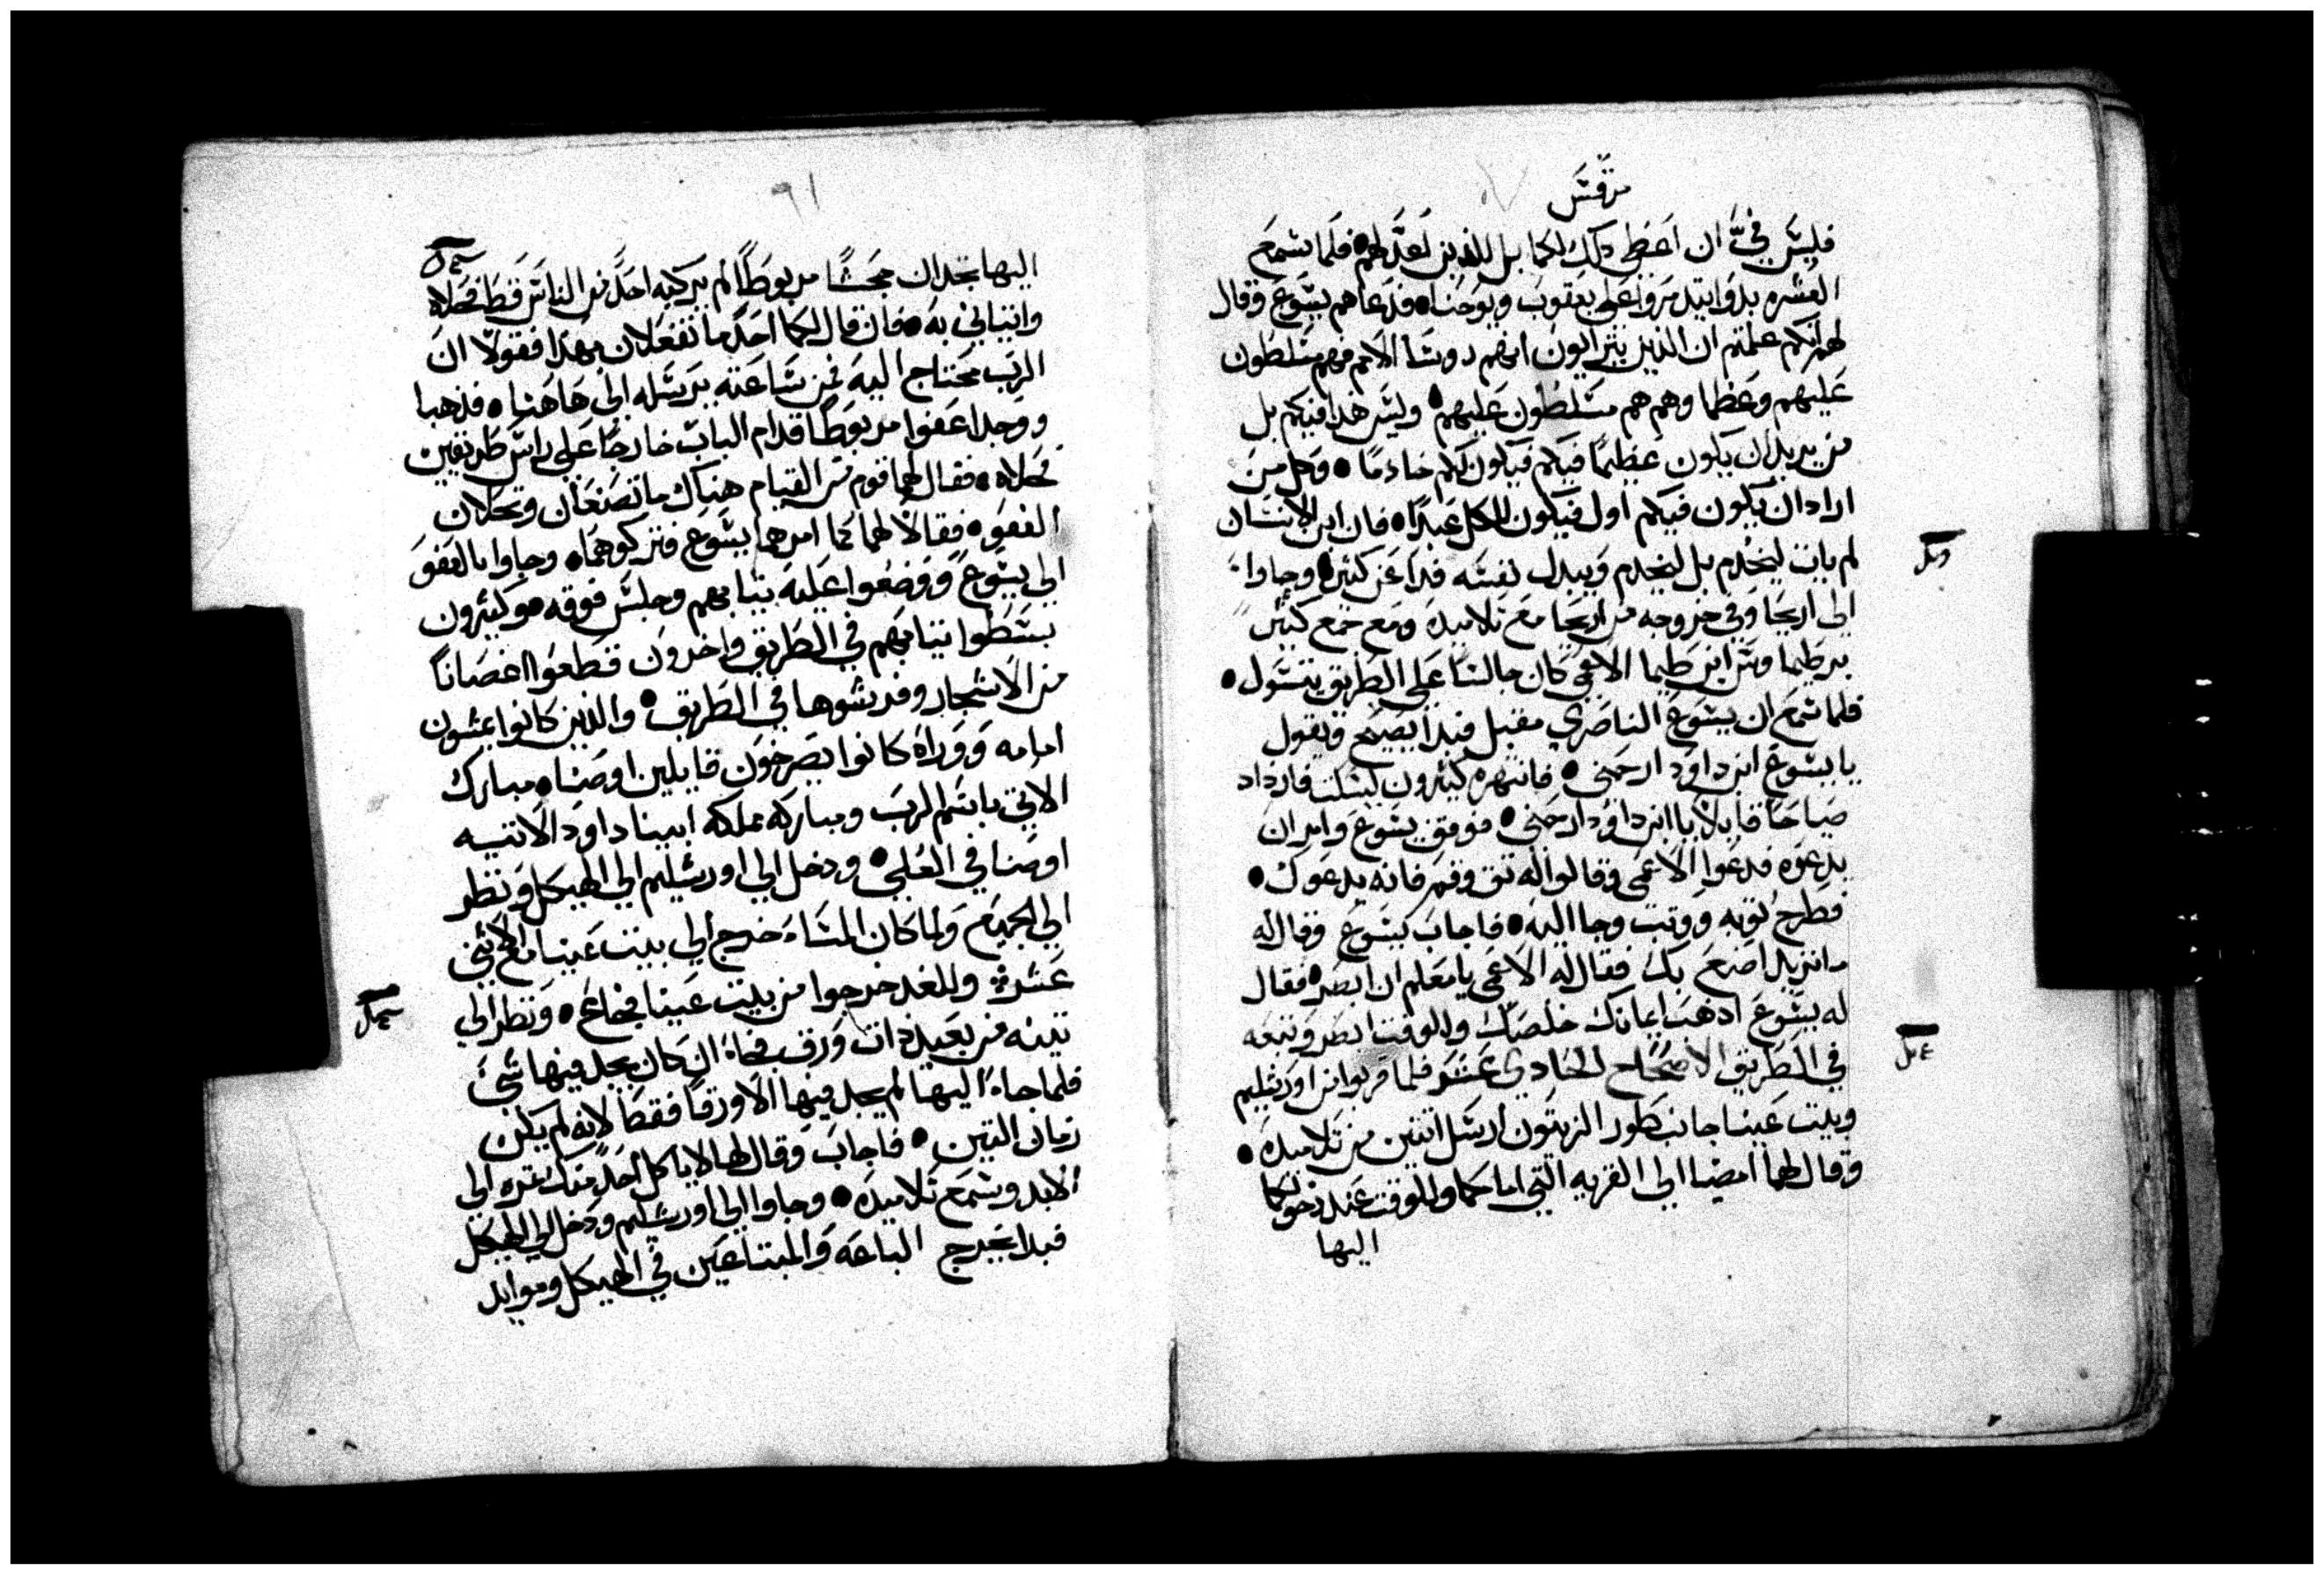 مرقس
فليس فيَّ ان اعطي دلك لكما بل للذين اعدّ لهم • فلما سمع
العشره بدوا يتدمروا على يعقوب ويوحنا • فدعاهم يسوع وقال
لهم انكم علمتم ان الذين يترايون انهم روسا الامم فهم متسلطون
عليهم وعظما وهم هم متسلطون عليهم • وليس هذا فيكم بل
من يريد ان يكون عظيمًا فيكم فيكون لكم خادمًا • وكل من
اراد ان يكون فيكم اول فيكون للكل عبدًا • فان ابن الانسان
لم يات ليُخدم بل ليخدم ويبدل نفسه فداً عن كثير • وجاوا
الى اريحا وفي خروجه من اريحا مع تلاميده ومع جمع كثير
برطيما وس ابن طيما الاعمى كان جالسًا على الطريق يتسول •
فلما سمع ان يسوع الناصري مقبل فبدا يصيح ويقول
يا يسوع ابن داوود ارحمني • فانتهره كثيرون ليسكت فازداد
صياحًا قايلاً يا ابن داوود ارحمني • فوقف يسوع وامر ان
يدعوه فدعوا الاعمى وقالوا له تق وقم فانه يدعوك •
فطرح ثوبه ووتب وجا اليه • فاجاب يسوع وقال له
ماتريد اصنع بك فقال له الاعمى يا معلم ان ابصر • فقال
له يسوع ادهب ايمانك خلصك وللوقت ابصر وتبعه
في الطريق الاصحاح الحادي عشر فلما قربوا من اورشليم
وبيت عينا جانب طور الزيتون ارسل اتنين من تلاميده •
وقال لهما امضيا الى القريه التي امامكما وللوقت عند دخولكما
اليها
٩١
اليها تجدان جحشًا مربوطًا لم يركبه احدٌ من الناس قط فحلاه
واتياني به • فان قال لكما احدٌ ما تفعلان بهدا فقولا ان
الرب محتاج اليه فمن ساعته يرسله الى هاهنا • فذهبا
ووجدا عفوا مربوطًا قدام الباب خارجًا على راس طريقين
فحلاه • فقال لهما قوم من القيام هناك ما تصنعان وتحلان
العفو • فقالا لهما كما امرهما يسوع فتركوهما • وجاوا بالعفو
الى يسوع ووضعوا عليه تيابهم وجلس فوقه • وكثيرون
بسطوا تيابهم في الطريق واخرون قطعوا اغصانًا
من الاشجار وفرشوها في الطريق • والذين كانوا يمشون
امامه ووراه كانوا يصرخون قايلين اوصنا • مبارك
الاتي باسم الرب ومباركه مملكه ابينا داوود الاتيه
اوصنا في العلى • ودخل الى اورشليم الى الهيكل ونظر
الى الجميع ولما كان المساء خرج الى بيت عينا مع الاثني
عشر • وللغد خرجوا من بيت عينا فجاع • ونظر الى
تينه من بعيد ذات ورق فجاء ان كان يجد فيها شئ
فلما جاء اليها لم يجد فيها الا ورقا فقط لانه لم يكن
زمان التين • فاجاب وقال لها لا ياكل احدٌ منك تمره الى
الابد وسمع تلاميده • وجاوا الى اورشليم ودخل الى الهيكل
فبدا يخرج الباعه والمبتاعين في الهيكل وموايد